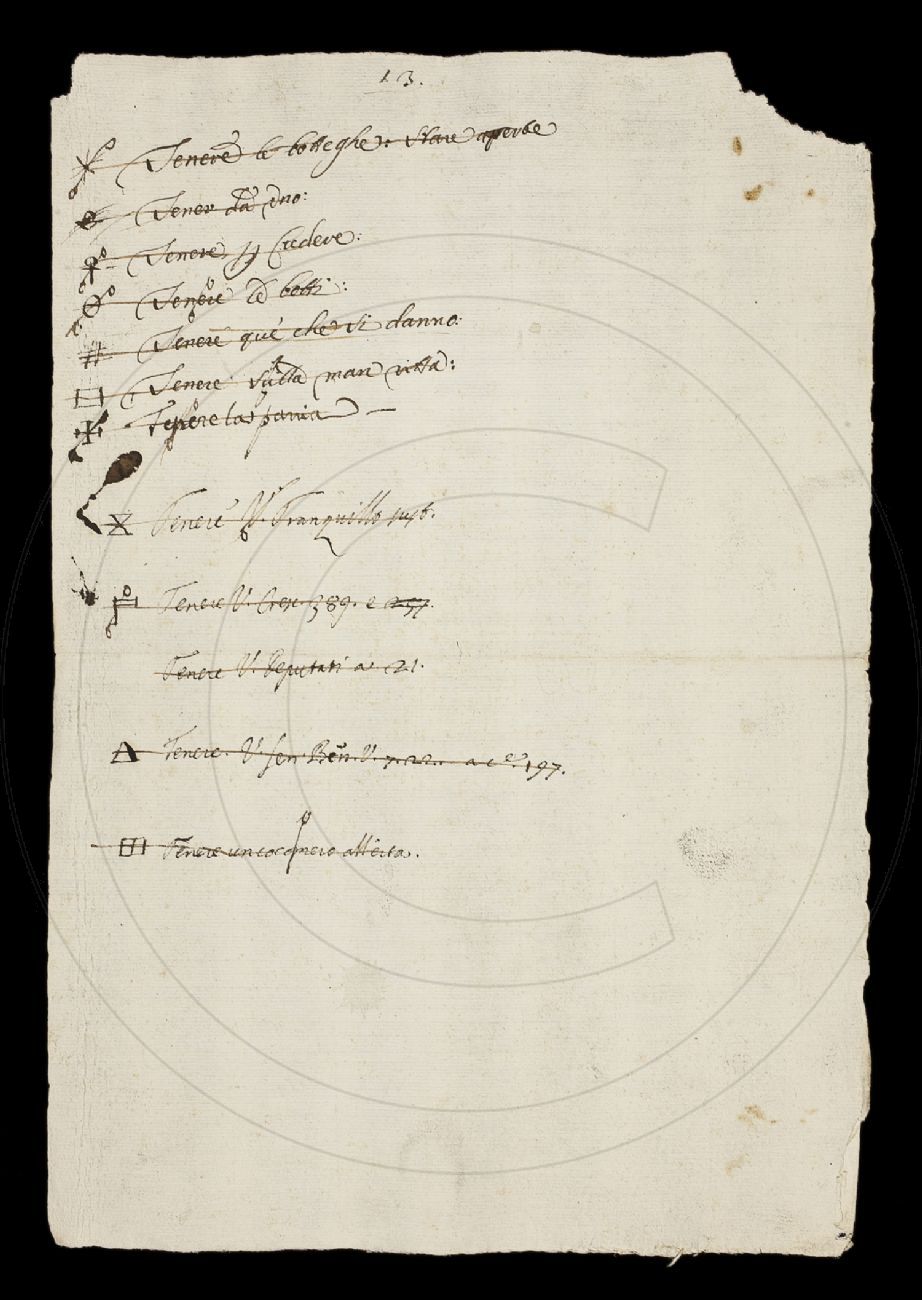 13.
Tenere le botteghe: stare aperte
Tener da dno:
Tenere p Credere:
Tenere le botti:
Tenere que che si danno:
Tenere sulla man ritta:
Tenere la pania
Tenere V. Tranquillo
Tenere V. Cresc. 389. e 257.
Tenere V. Deputati a 21.
Tenere. V. Sen. Ben. V. 7. 22. a c. 197.
Tenere un cocomero all'erta.